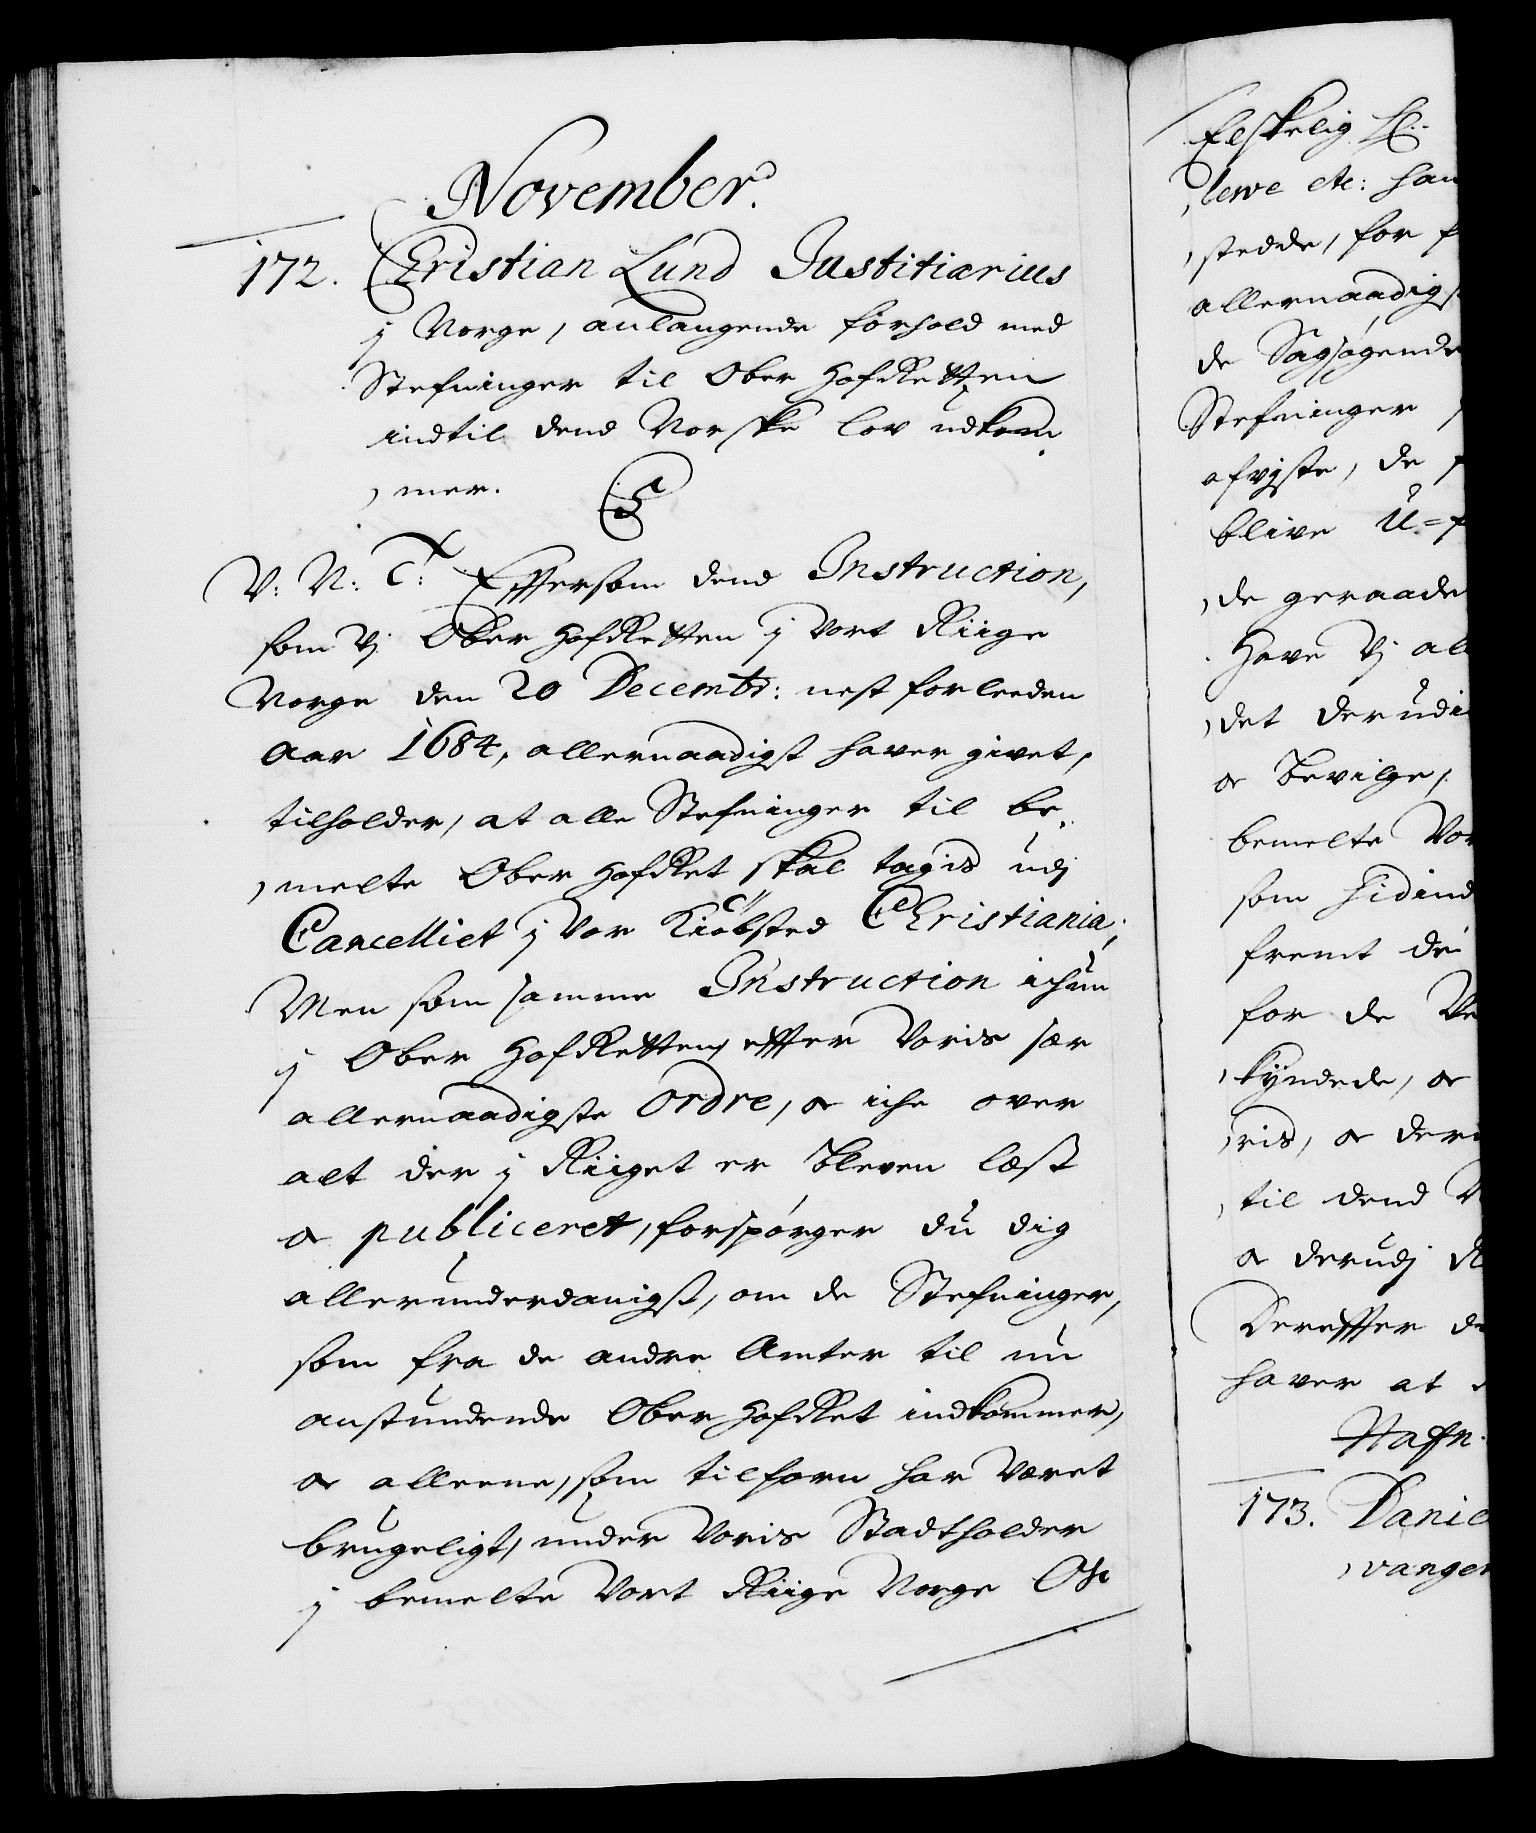 November.
172. Christian Lund Justitiarius
j Norge, anlangende forhold med
Stefninger til Ober HofRetten
indtil dend Norske lov udkom¬
mer.
V: N: C: Effersom dend Instruction,
som Vj Ober HofRetten j Vort Riige
Norge den 20 Decembr: nest forleeden
Aar 1684, allernaadigst haver givet,
tilholder, at alle Stefninger til be¬
melte Ober HofRet skal tagis udj
Cancelliet j Vor Kiøbsted Christiania;
Men som samme Instruction ichun
j Ober HofRetten, effter Voris sær
allernaadigste Ordre, oc iche over
alt der j Riiget er bleven læst
oc publiceret, forspørger du dig
allerunderdanigst, om de Stefninger,
som fra de andre Amter til nu
anstundende Ober HofRet indkommer,
oc alleene, som tilforn har Været
brugeligt, under Voris Stadtholder
j bemelte Vort Riige Norge Os
Elskelig H:
lewe etc: han
stedde, for
allernaadigst
de Sagsøgende
Stefninger
afvjste, de
blive U=
de geraade
Have Vj al
det derudi
oc bevilge,
bemelte Vor
som hidind
fremt de
for de Ve
kyndede, oc
ris, oc der
til dend N
oc derudj R
Dereffter de
haver at
Hafn.
173. Danie
vanger